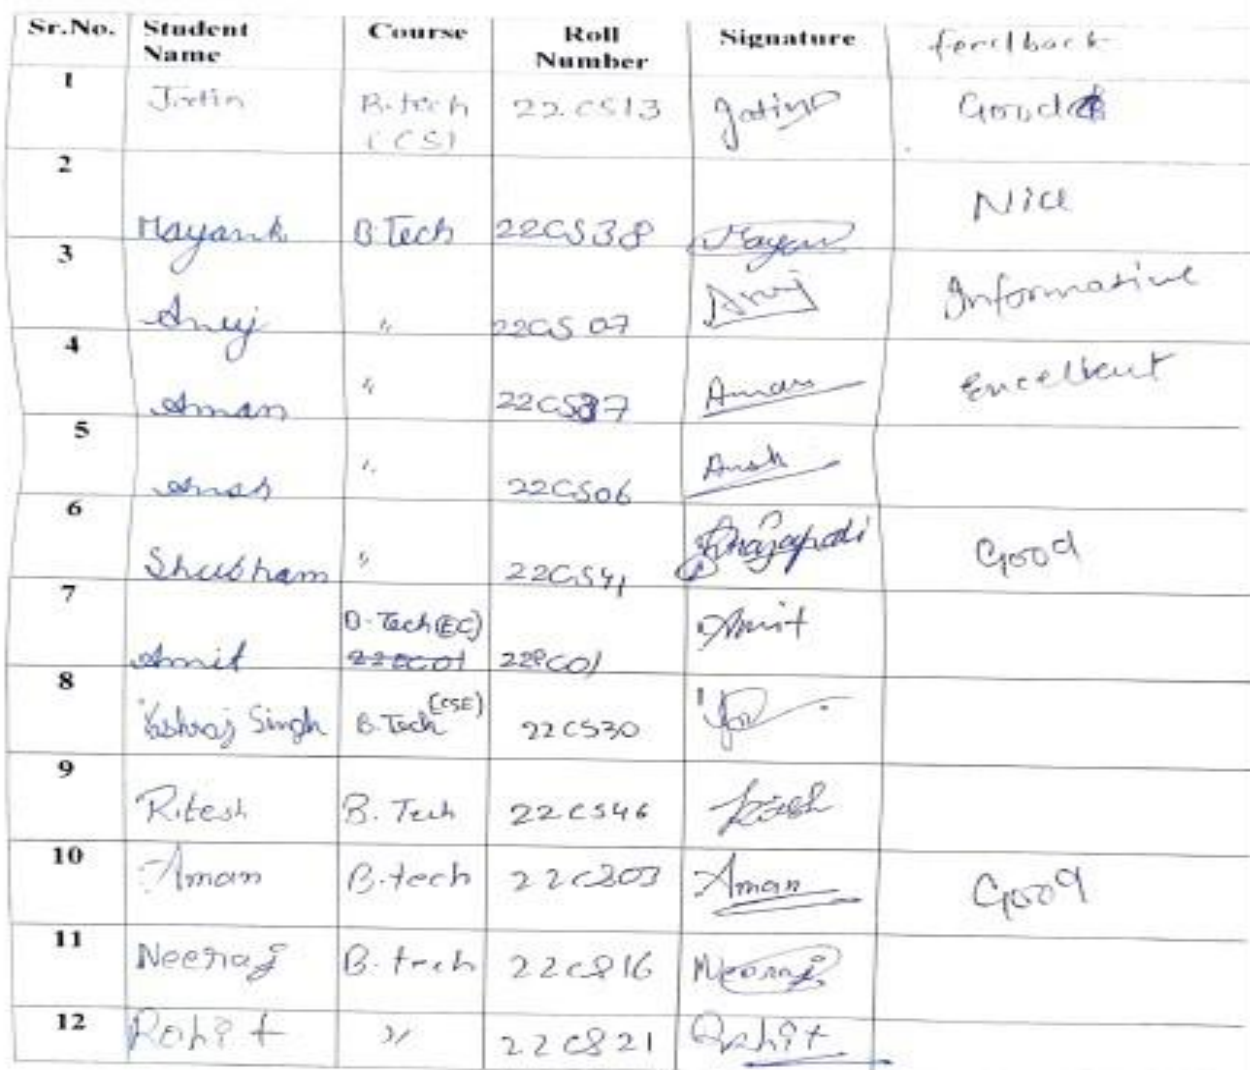 Sr.No. Student Name Course Roll Number Signature feedback
1 Jatin B.tech (CS) 22CS13 Jatin Good
2 Mayank B.Tech 22CS38 Mayan Nice
3 Anuj " 22CS07 Anuj Informative
4 Aman " 22CS37 Aman Excellent
5 Ansh " 22CS06 Ansh
6 Shubham " 22CS41 Prajapati Good
7 Amit B.Tech(EC) 22EC01 22EC01 Amit
8 Yashraj Singh B.Tech (CSE) 22CS30
9 Ritesh B.Tech 22CS46 Ritesh
10 Aman B.tech 22CS03 Aman Good
11 Neeraj B.tech 22CS16 Neeraj
12 Rohit " 22CS21 Rohit